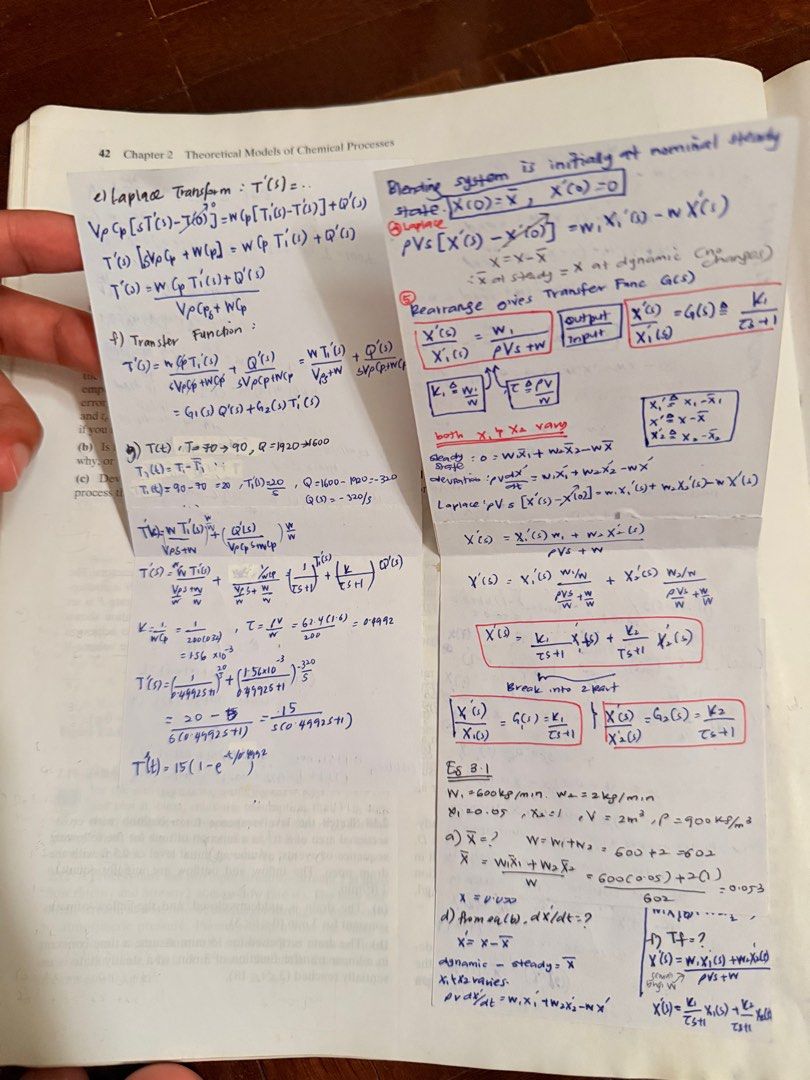 42 Chapter 2 Theoretical Models of Chemical Processes
e) Laplace Transform : T'(s) = ..
VρCp[sT'(s)-T'(0)]=wCp[Ti'(s)-T'(s)]+Q'(s)
0
T'(s) [sVρCp + wCp] = wCp Ti'(s) + Q'(s)
T'(s) = wCp Ti'(s)+Q'(s)
VρCps + wCp
f) Transfer Function :
T'(s) = wCpTi'(s) + Q'(s) = wTi'(s) + Q'(s)
sVρCp+wCp sVρCp+wCp Vρs+w sVρCp+wCp
= G1(s) Q'(s) + G2(s) Ti'(s)
g) T(t) , T=70→90, Q=1920→1600
Ti(t) = 90-70 = 20 , Ti'(s)=20/s , Q=1600-1920=-320
Q(s) = -320/s
K = 1/wCp = 1/200(0.32) , τ = ρV/w = 62.4(1.6)/200 = 0.4992
= 1.56 x10^-3
T'(s)=(1/0.4992s+1) 20/s + (1.56x10^-3/0.4992s+1) -320/s
= 20 - 5 = 15
s(0.4992s+1) s(0.4992s+1)
T'(t) = 15(1-e^-t/0.4992)
Blending system is initially at nominal steady
state. X(0)=x̄ , X'(0)=0
Laplace
ρVs[X'(s) - X'(0)] = w1X1'(s) - wX'(s)
X = X-x̄
∴ x̄ at steady = x at dynamic (no changes)
⑤
Rearrange gives Transfer Func G(s)
X'(s) = w1
X1'(s) ρVs+w
output
input
X'(s) = G(s) ≙ K1
X1'(s) τs+1
K1 ≙ w1/w
τ ≙ ρV/w
x1' ≙ x1-x̄1
x' ≙ x-x̄
x2' ≙ x2-x̄2
both x1 & x2 vary
steady state : 0 = wx̄1 + w2x̄2-wx̄
deviation : ρvdx'/dt = w1x1' + w2x2' - wx'
Laplace : ρVs[X'(s)-X'(0)] = w1X1'(s) + w2X2'(s)-wX'(s)
X'(s) = X1'(s)w1 + w2X2'(s)
ρVs + w
X'(s) = X1'(s) w1/w + X2'(s) w2/w
ρVs/w + w/w ρVs/w + w/w
X'(s) = K1 X1'(s) + K2 X2'(s)
τs+1 τs+1
Break into 2 part
X'(s) = G1(s) = K1
X1'(s) τs+1
X'(s) = G2(s) = K2
X2'(s) τs+1
Eg 3.1
W1=600kg/min. w2=2kg/min
x1=0.05 , x2=1 , V=2m³ , ρ=900kg/m³
a) x̄=? w=w1+w2 = 600+2 = 602
x̄ = w1x̄1 + w2x̄2 = 600(0.05)+2(1) = 0.053
w 602
d) from eq(b), dx'/dt=?
x' = x-x̄
dynamic - steady = x̄
x1+x2 varies.
ρv dx'/dt = w1x1' + w2x2' - wx'
f) Tf=?
X'(s) = w1X1'(s)+w2X2'(s)
ρVs+w
X'(s) = K1 X1(s) + K2 X2(s)
τs+1 τs+1